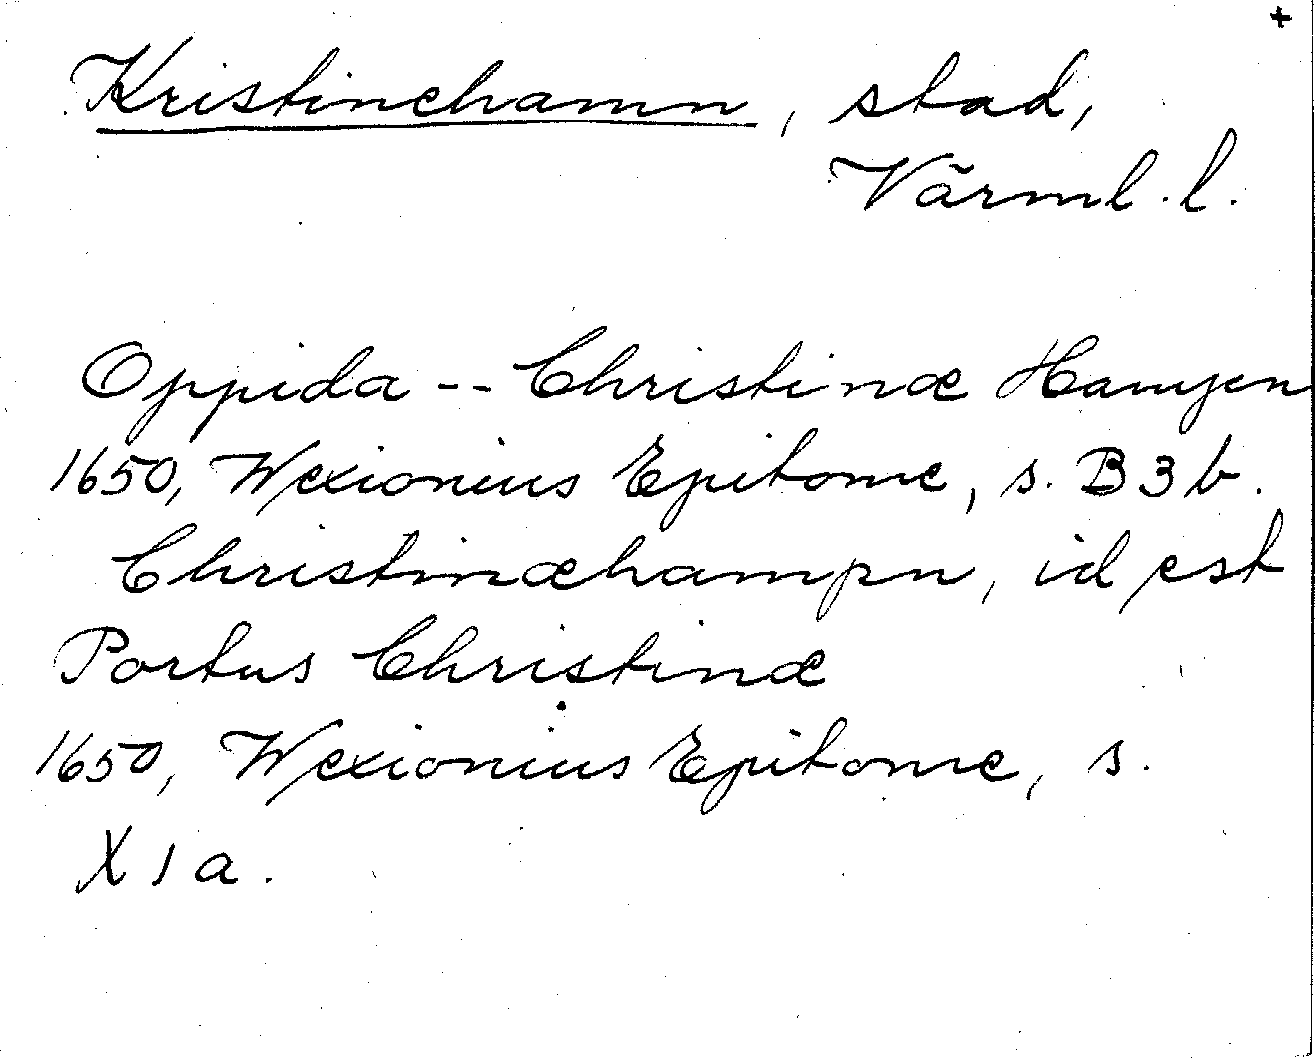 +
Kristinehamn, stad,
Värml. l.
Oppida -- Christinæ Hamjen
1650, Wexionius Epitome, s. B 3 b.
Christinæhampn, id est
Portus Christinæ
1650, Wexionius Epitome, s.
X 1 a.